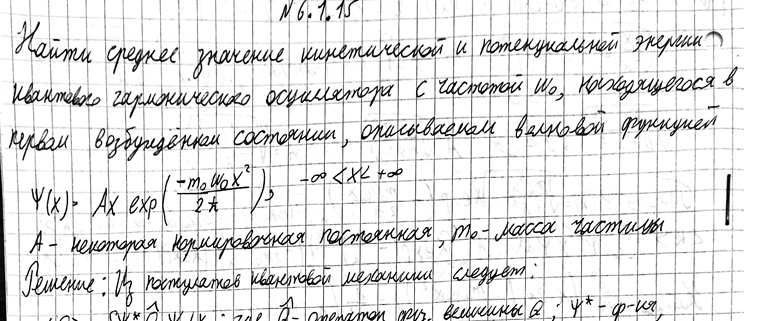 N 6.1.15
Найти среднее значение кинетической и потенциальной энергии
квантового гармонического осциллятора с частотой ω₀, находящегося в
первом возбуждённом состоянии, описываемом волновой функцией
Ψ(x) = Ax exp(-m₀ω₀x²/2ħ), -∞ < x < +∞
A - некоторая нормировочная постоянная, m₀ - масса частицы
Решение: Из постулатов квантовой механики следует:
Ψ* Q̂ Ψ dx ; где Q̂ - оператор физ. величины Q ; Ψ* - ф-ия,